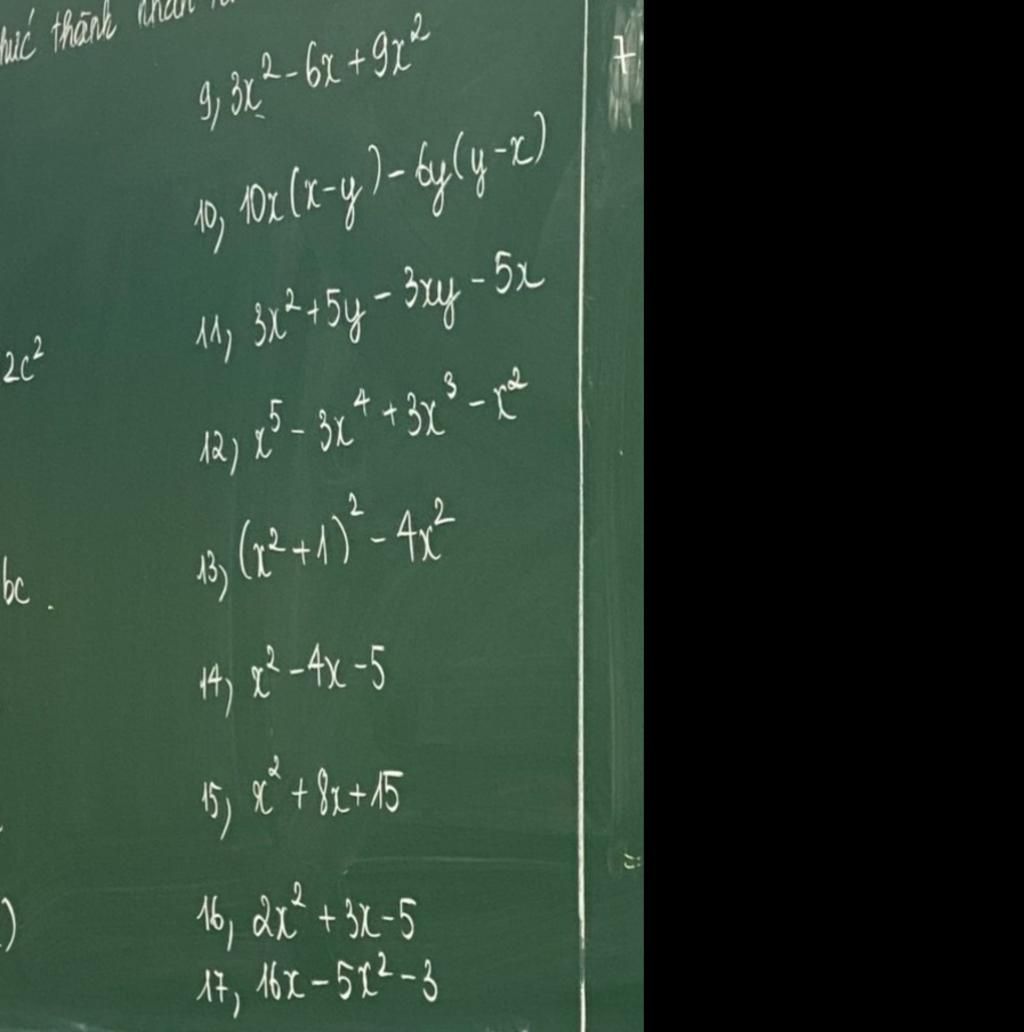 thành nhân
9, 3x² - 6x + 9x²
10, 10x(x-y) - 6y(y-x)
11, 3x² + 5y - 3xy - 5x
2c²
12, x⁵ - 3x⁴ + 3x³ - x²
13, (x²+1)² - 4x²
bc.
14, x² - 4x - 5
15, x² + 8x + 15
) 16, 2x² + 3x - 5
17, 16x - 5x² - 3